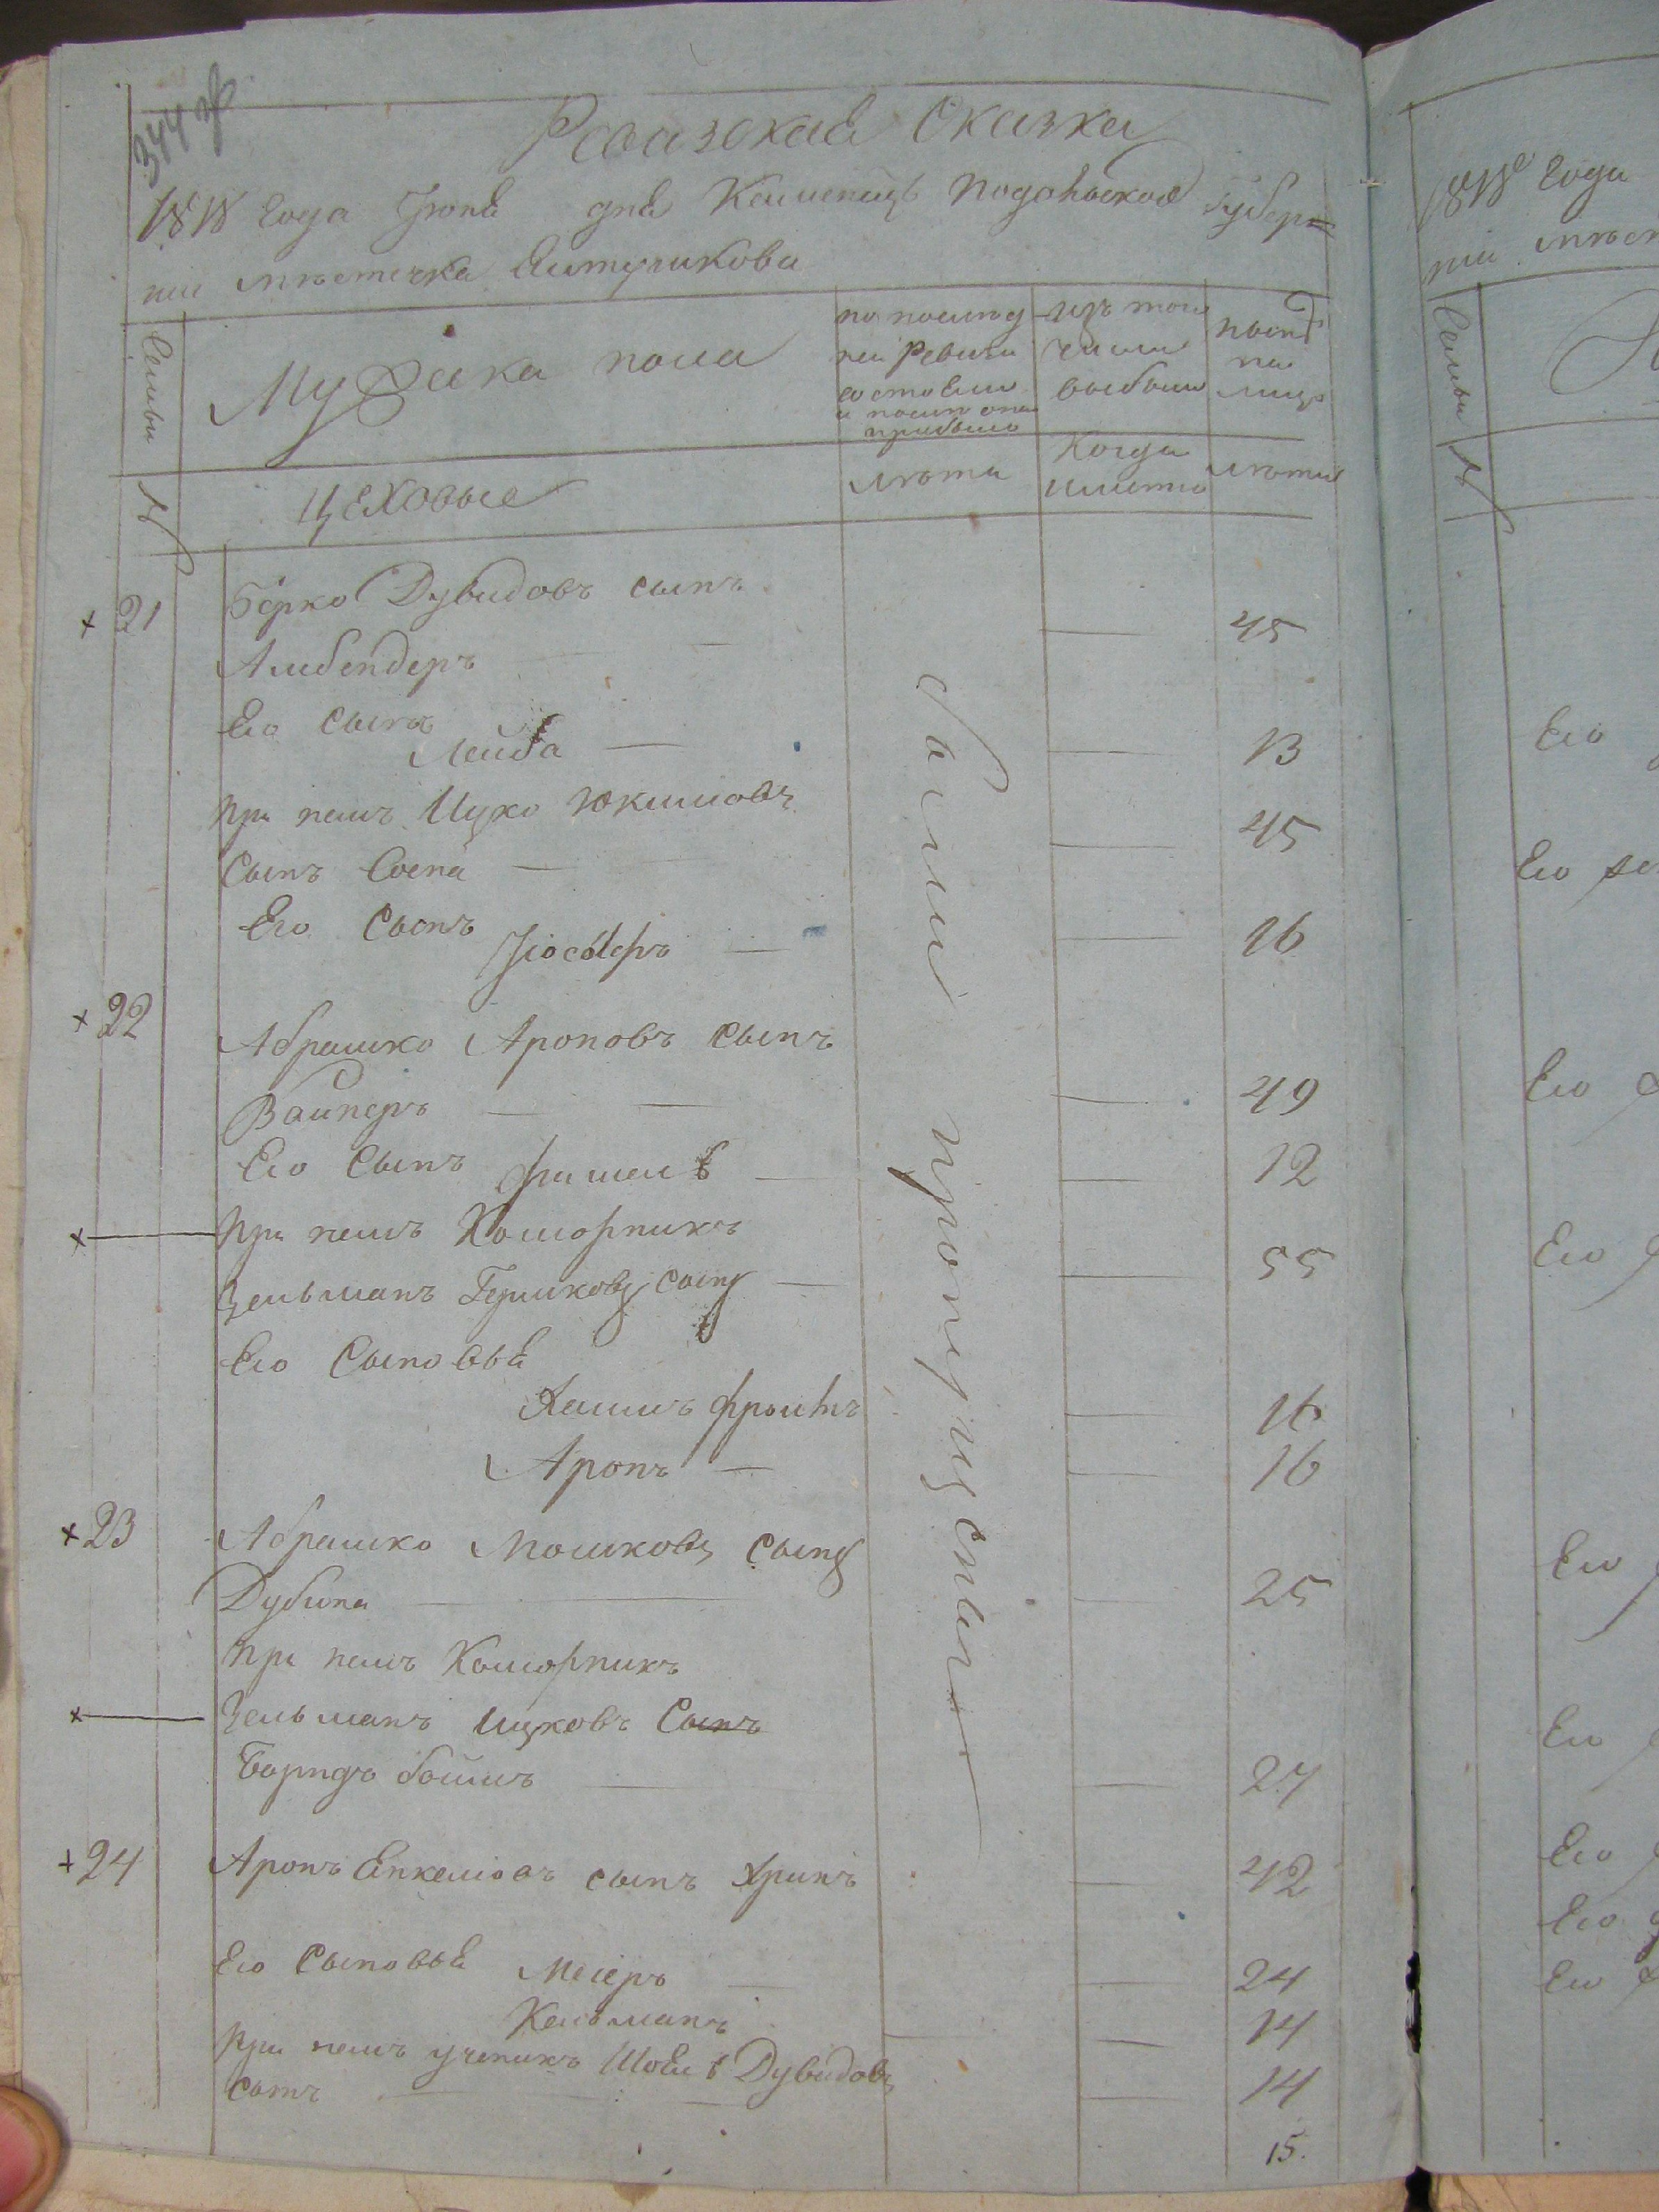 344 об.
Ревизская Сказка
1818 года Іюня дня Каменецъ Подольской Губер=
ніи мѣстечка Ялтушкова
Семьи
Мужеска пола
по послѣд
ней Ревизіи
состояло
и послѣ оной
прибыло
Изъ того
числа
выбыли
нынѣ
на
лицо
№
Цеховые
лѣта
Когда
именно
лѣта
21
Берко Дувидовъ сынъ
Альбендеръ — — — 45
Его сынъ
Лейба — — 13
При немъ Ицко Юкимовъ
Сынъ — — 45
Его Сынъ
— — 16
22
Абрашко Ароновъ Сынъ
Вайнеръ — — — 49
Его Сынъ Фишель — — 12
При немъ Коморникъ
Зельманъ Гершковъ Сынъ — — 55
Его Сыновья
Хаимъ — 16
Аронъ — — 16
23
Абрашко Мошковъ Сынъ
Дубина — — 25
При немъ Коморникъ
Зельманъ Ицковъ Сынъ
— — 27
24
Аронъ Янкеліовъ сынъ — 42
Его Сыновья Меіеръ — — 24
Кельманъ — 14
При немъ ученикъ Дувидовъ
Сынъ — — — 14
15.
были пропущены
1818º года
ніи мѣст
Семьи
№
Его
Его
Его
Его
Его
Его
Его
Его
Его